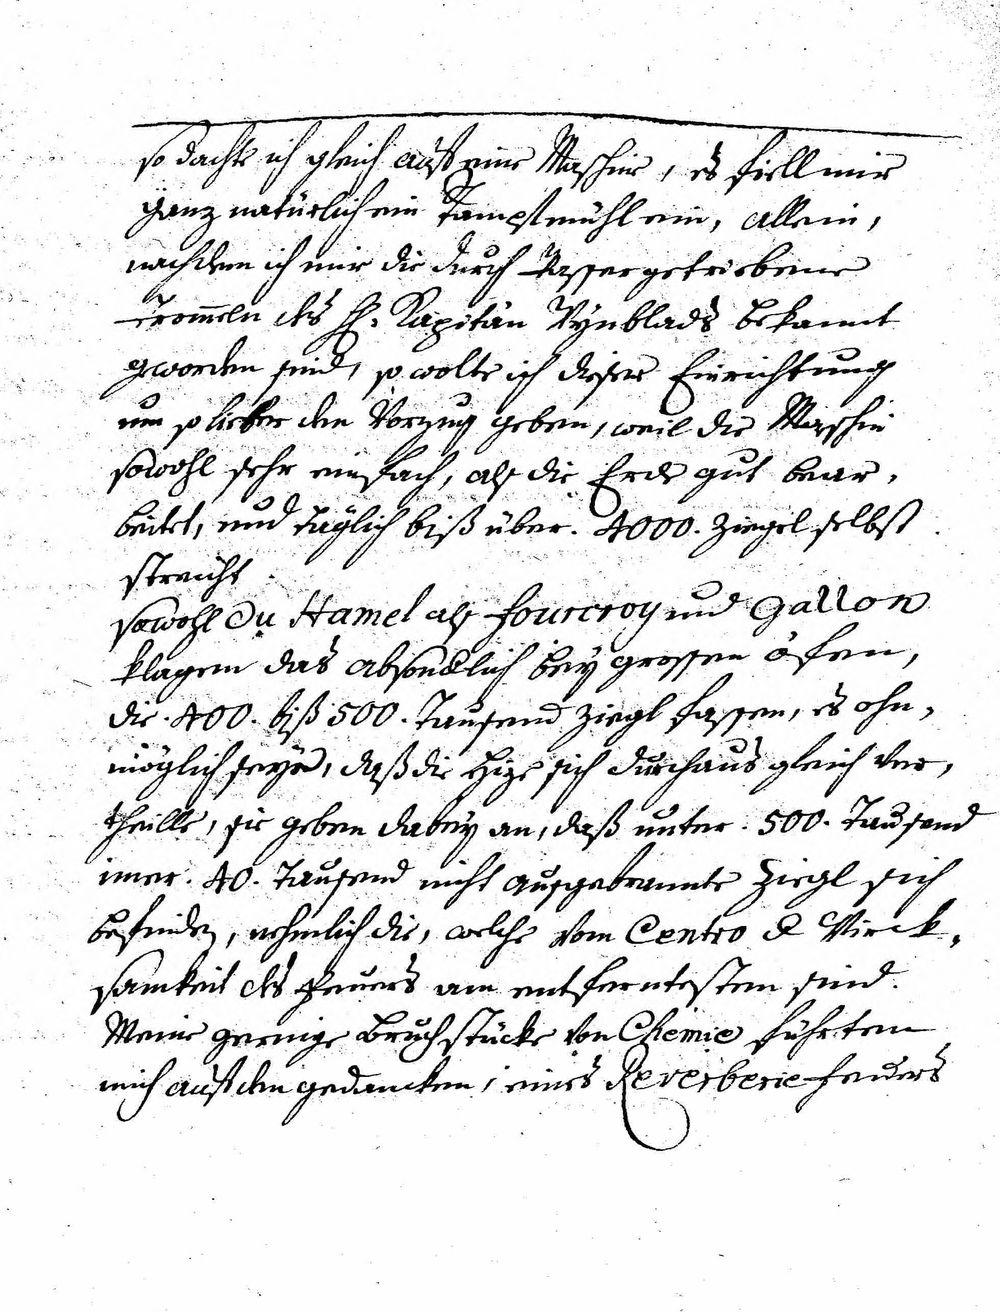 so dachte ich gleich auf eine Maschine, es fiell mir
ganz natürlich ein Tampfmühl ein, allein,
nachdem ich mir die durch Wasser getriebene
Trommeln des H. Kapitän Wynblads bekannt
geworden sind, so wolte ich dieser Einrichtung
um so lieber den Vorzug geben, weil die Maschin
sowohl sehr einfach, als die Erde gut bear,
beitet, und täglich biß über. 4000. Ziegel selbst
streicht.
sowohl Du Hamel als fourcroy und Gallon
klagen das absonderlich bey grossen öfen,
die. 400. biß 500. Tausend Ziegl fassen, es ohn,
möglich seye, daß die Hize sich durchaus gleich ver,
theille, sie geben dabey an, daß unter. 500. Tausend
imer. 40. Tausend nicht ausgebrannte Ziegl sich
befinden, nehmlich die, welche vom Centro d Wirck,
samkeit des Feuers am entferntesten sind.
Meine geringe Bruchstücke von Chemie führten
mich auf den gedancken, eines Reverberie-feuers